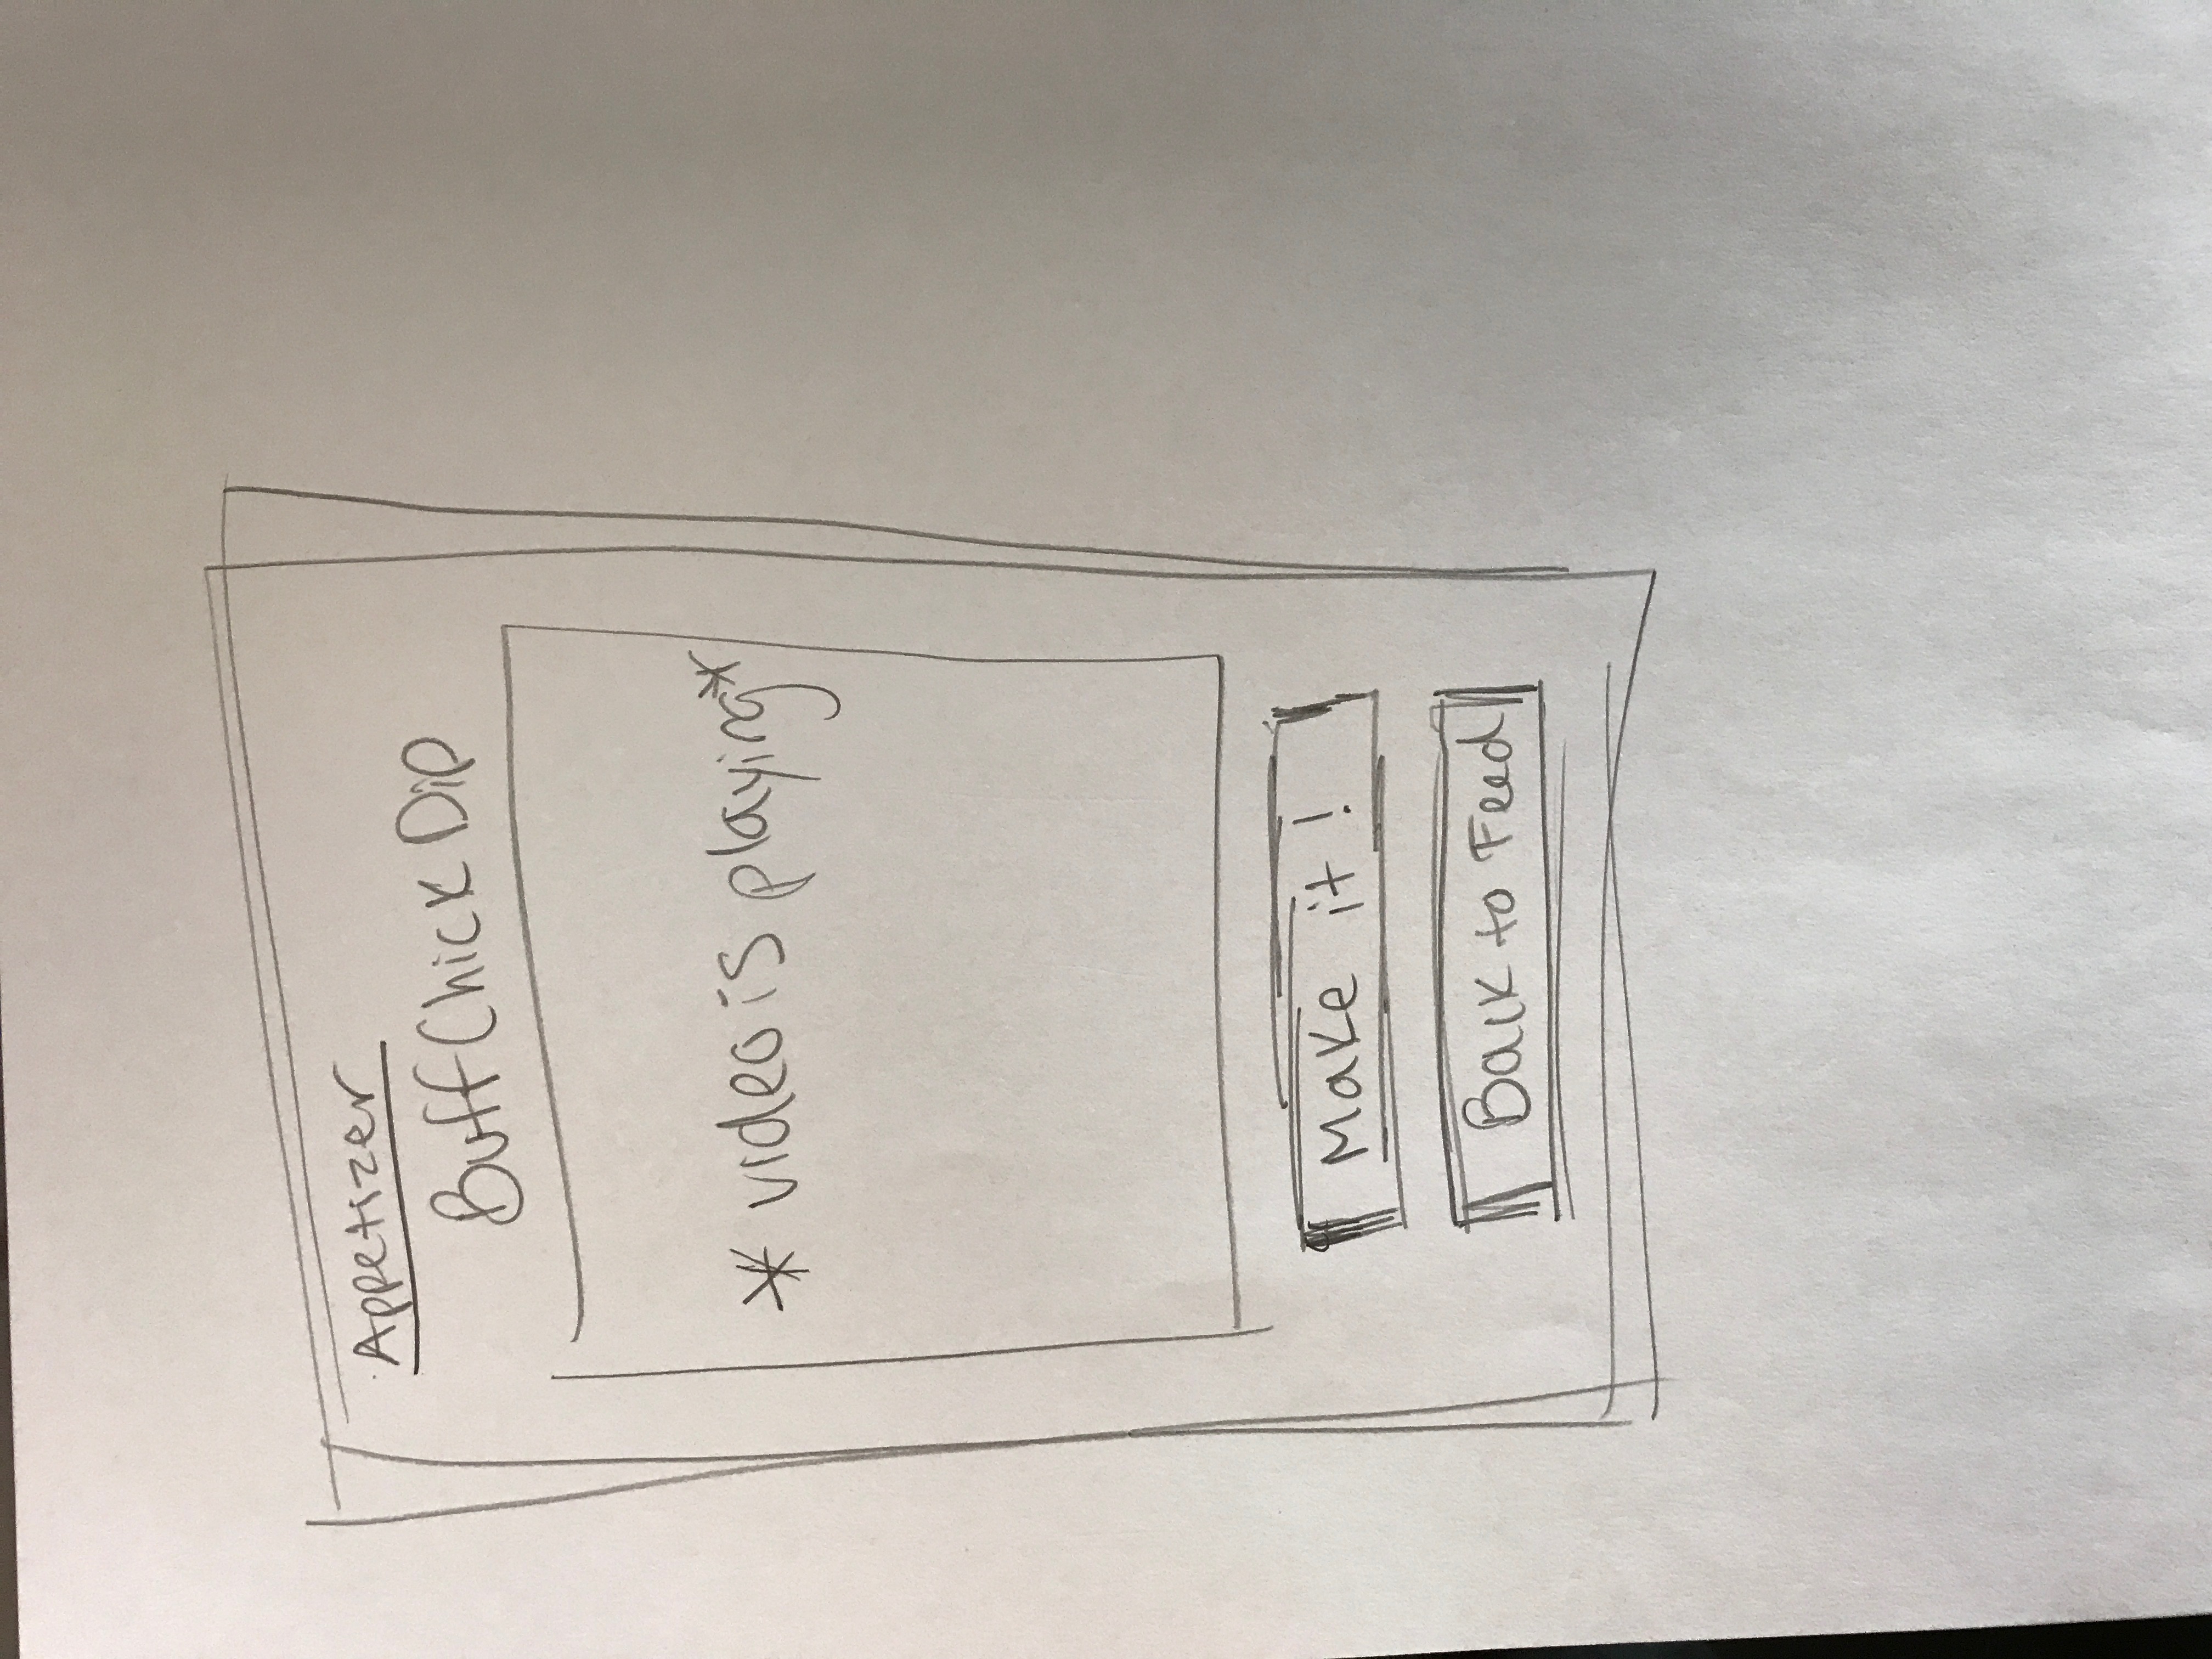 Appetizer
Buff Chick Dip
* video is playing*
Make it!
Back to Feed